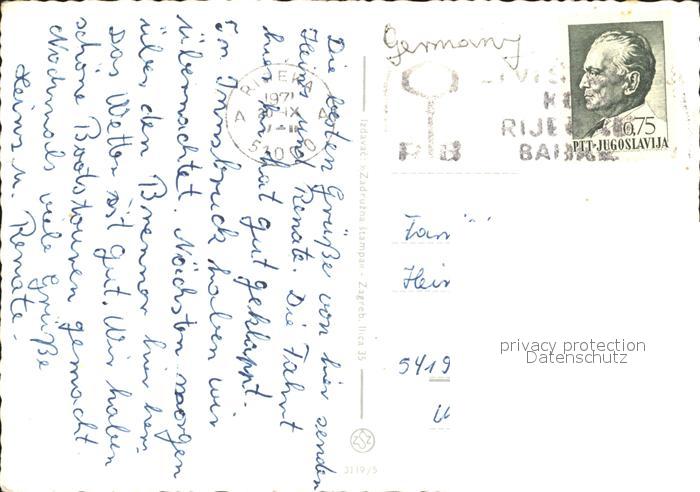 Die besten Grüße von hier senden
Heinz und Renate. Die Fahrt
hier hin hat gut geklappt.
In Innsbruck haben wir
übernachtet. Nächsten morgen
über den Brenner hier her.
Das Wetter ist gut. Wir haben
schöne Bootstouren gemacht.
Nochmals viele Grüße
Heinz u. Renate.
Izdavač: Zadružna štampa - Zagreb, Ilica 35
3119/5
Germany
1971
RIJEKA
BANKA
0.75
PTT-JUGOSLAVIJA
Fam
Hein
5419
privacy protection
Datenschutz